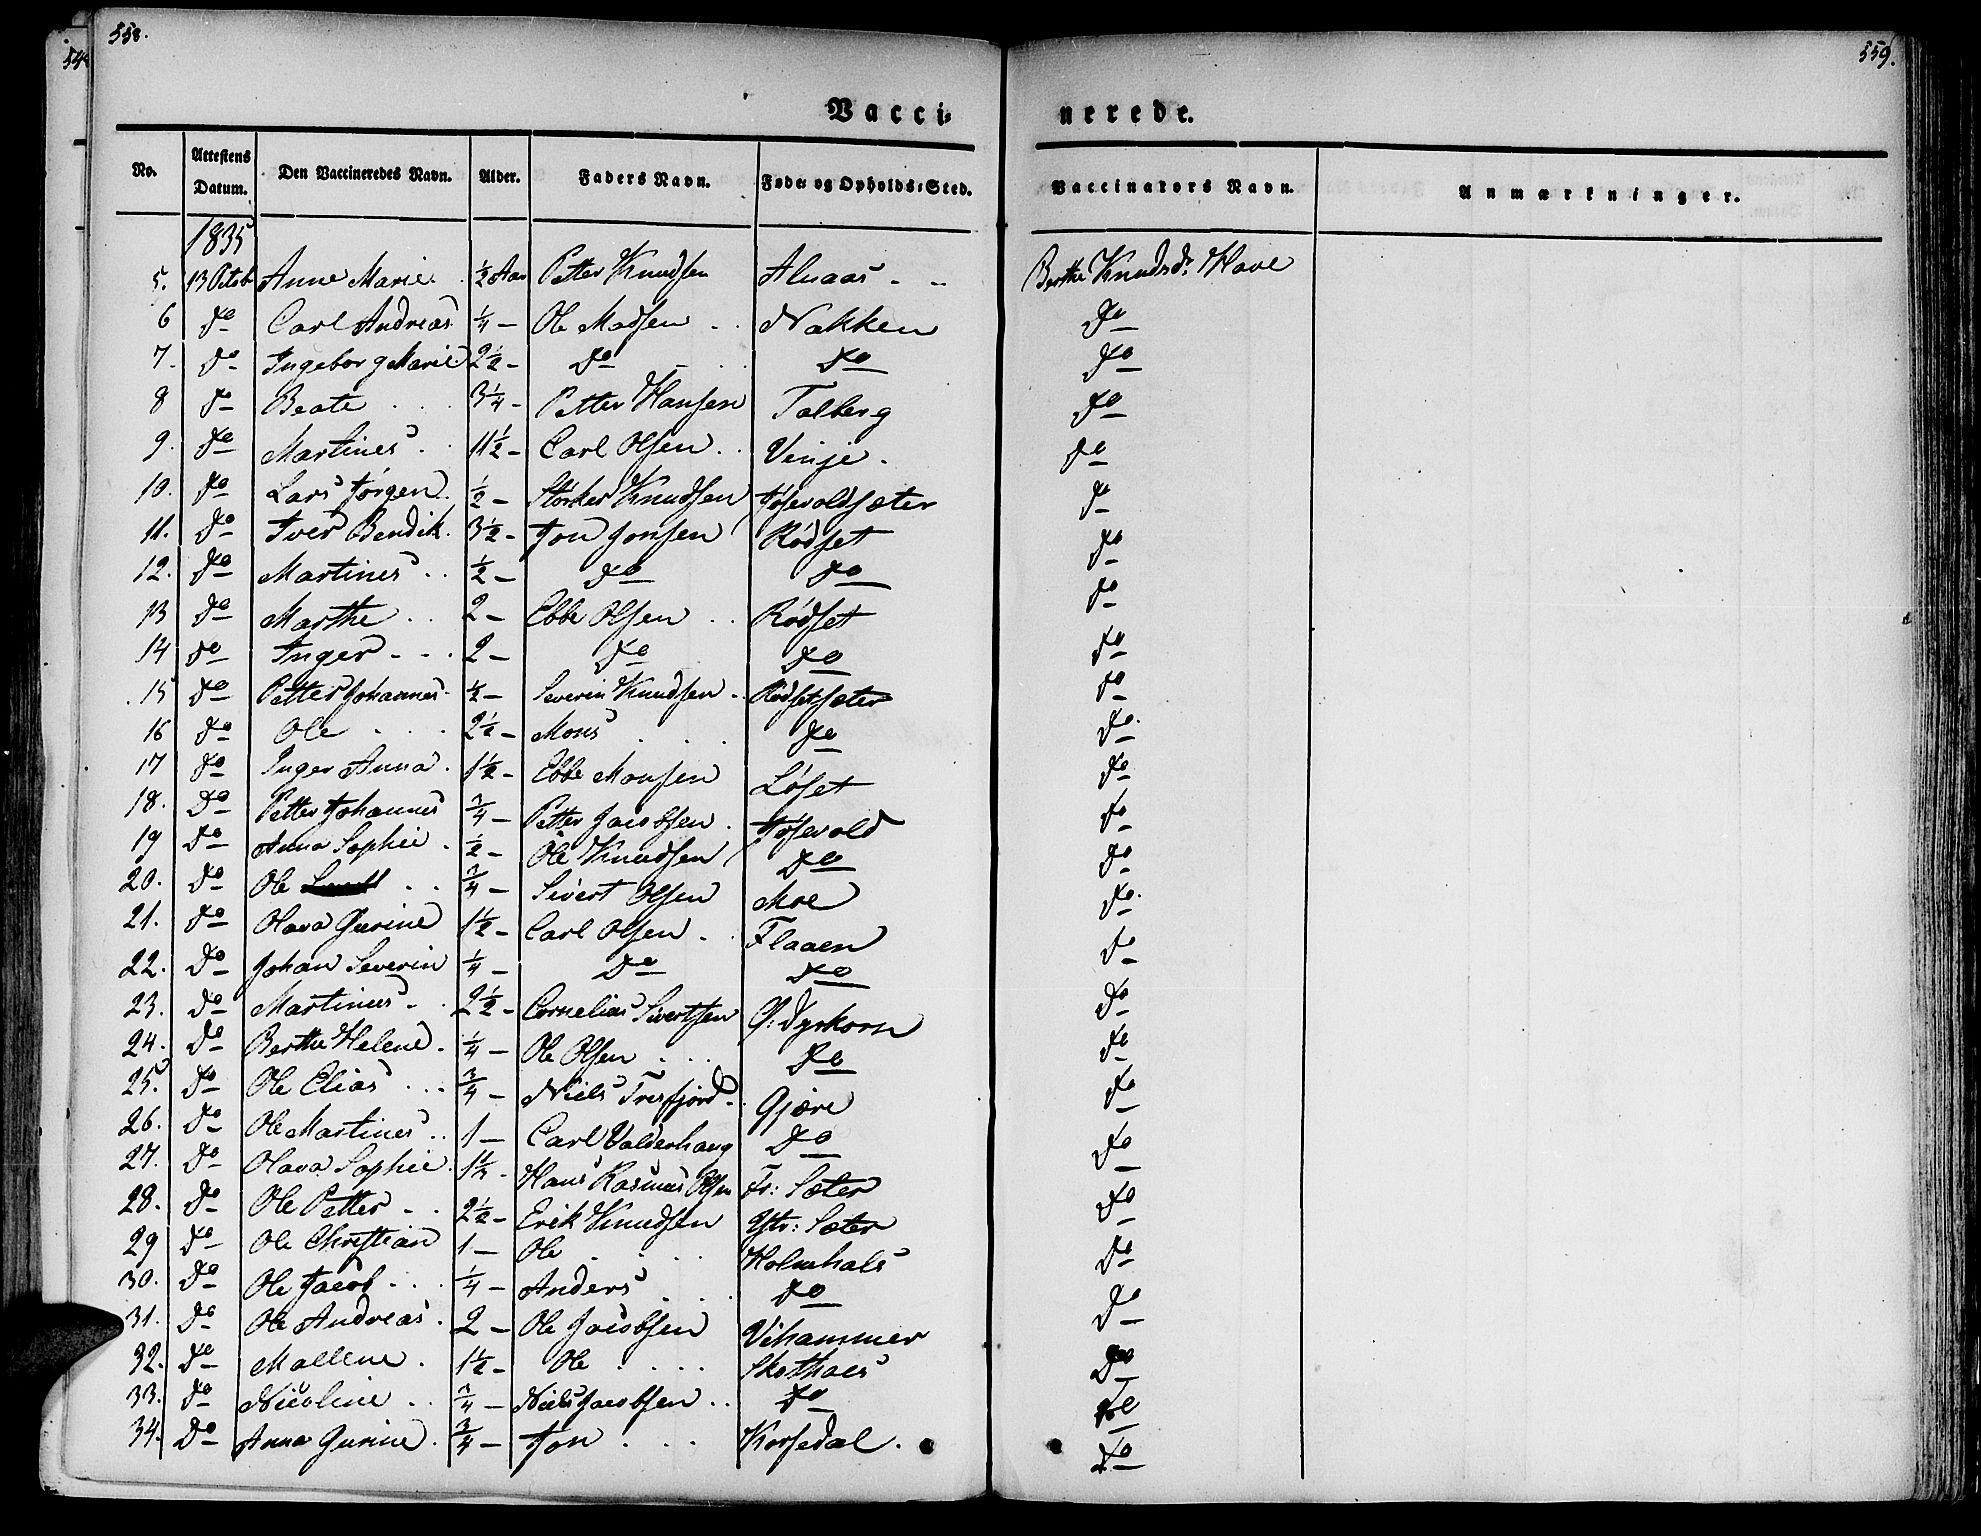 558.
559.
Vacci-
nerede.
No. | Attestens Datum. | Den Vaccineredes Navn. | Alder. | Faders Navn. | Føde- og Opholds-Sted. | Vaccinators Navn. | Anmærkninger.
1835
5. | 13 Octob | Anne Marie | ½ Aar | Petter Knudsen | Aluaas | Berthe Knudsdr. Have
6 | Do | Carl Andreas | ¼ - | Ole Madsen | Nakken | Do
7. | Do | Ingeborg Marie | 2½ - | Do | Do | Do
8 | Do | Beate | 3¼ - | Petter Hansen | Talberg | Do
9. | Do | Martines | 11½ - | Carl Olsen | Vinje | Do
10. | Do | Lars Jørgen | ½ - | Størker Knudsen | Jøsevoldsæter | Do
11. | Do | Iver Bendik | 3½ - | Jon Jonsen | Rødset | Do
12. | Do | Martines | ½ - | Do | Do | Do
13 | Do | Marthe | 2 - | Ebbe Olsen | Rødset | Do
14 | Do | Inger | 2 - | Do | Do | Do
15 | Do | Petter Johannes | ½ - | Severin Knudsen | Rødsetsæter | Do
16 | Do | Ole | 2½ - | Mons | Do | Do
17 | Do | Inger Anna | 1½ - | Ebbe Monsen | Løset | Do
18. | Do | Petter Johannes | ¾ - | Petter Jacobsen | Jøsevold | Do
19 | Do | Anna Sophie | ½ - | Ole Knudsen | Do | Do
20. | Do | Ole | ¾ - | Sivert Olsen | Moe | Do
21. | Do | Olava Gurine | 1½ - | Carl Olsen | Flaaen | Do
22. | Do | Johan Severin | ¼ - | Do | Do | Do
23. | Do | Martinus | 2½ - | Cornelius Sivertsen | Dyrkorn | Do
24. | Do | Berthe Helene | ¼ - | Ole Olsen | Do | Do
25. | Do | Ole Elias | ¾ - | Niels Tresfjord | Gjære | Do
26. | Do | Ole Martines | 1 - | Carl Valderhaug | Do | Do
27. | Do | Olava Sophie | 1½ - | Hans Rasmus Olsen | Fr: Sæter | Do
28. | Do | Ole Petter | 2½ - | Erik Knudsen | Ytr: Sæter | Do
29 | Do | Ole Christian | 1 - | Ole | Holmehals | Do
30. | Do | Ole Jacob | ¼ - | Anders | Do | Do
31. | Do | Ole Andreas | 2 - | Ole Jacobsen | Vihammer | Do
32. | Do | Mallene | 1½ - | Ole | Skothaes | Do
33. | Do | Nicoline | ¾ - | Niels Jacobsen | Do | Do
34. | Do | Anna Gurine | ¾ - | Jon | Korsedal | Do